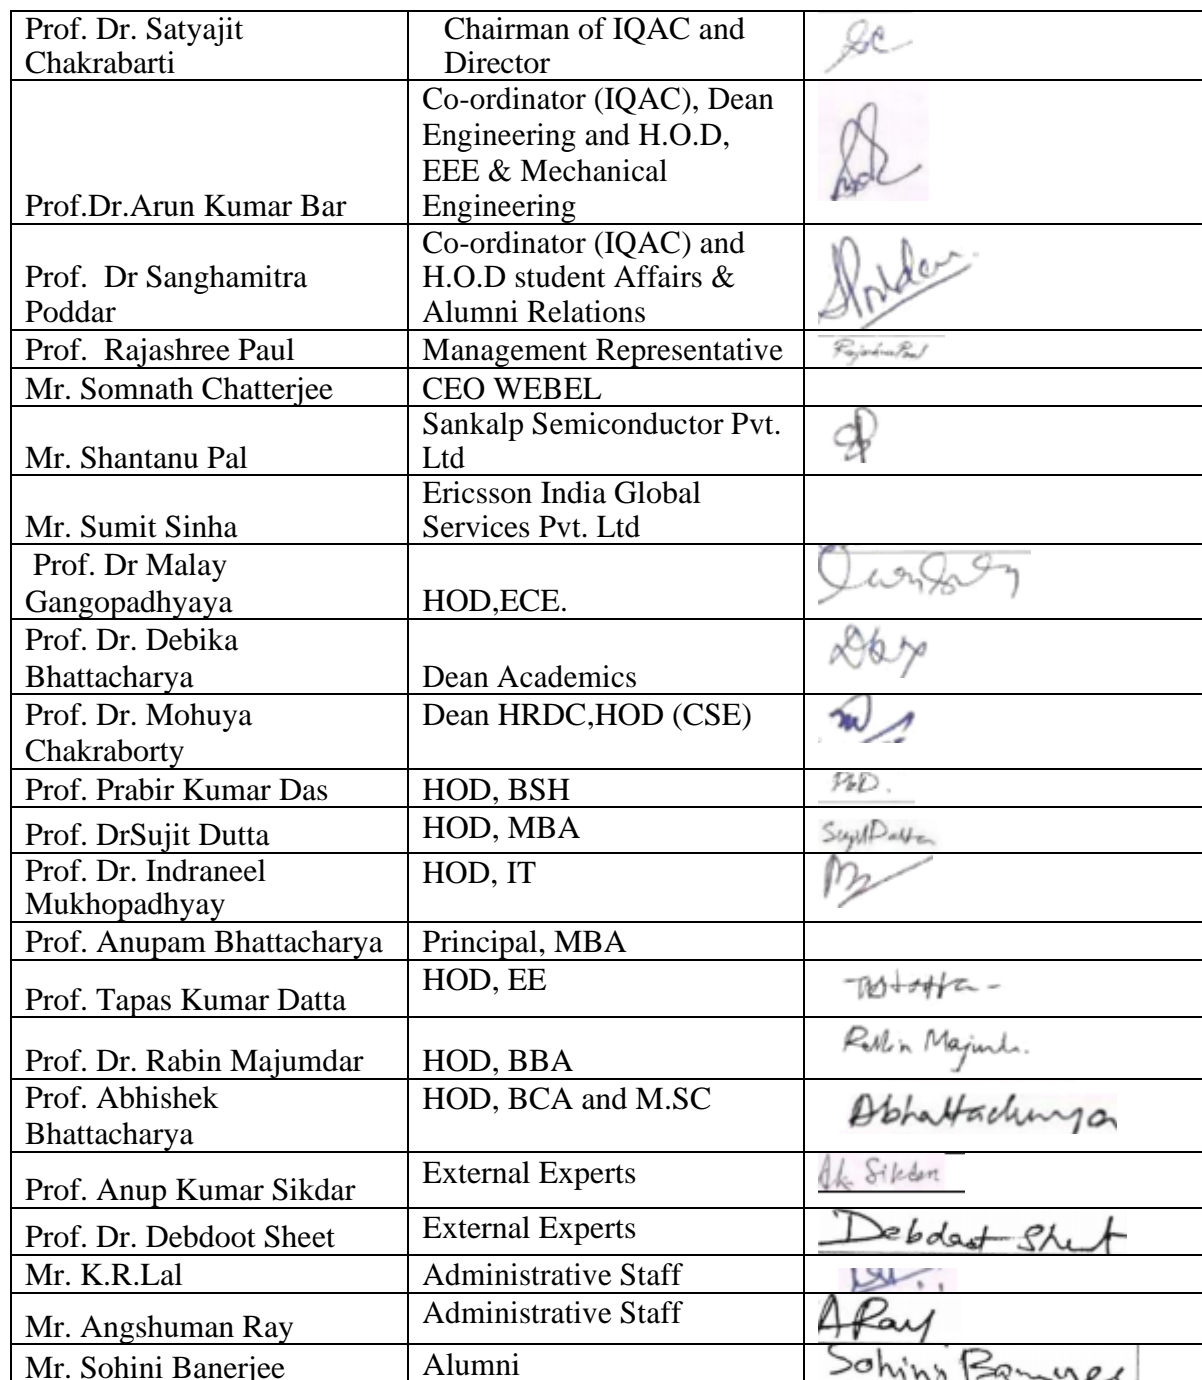 Prof. Dr. Satyajit
Chakrabarti
Chairman of IQAC and
Director
Prof.Dr.Arun Kumar Bar
Co-ordinator (IQAC), Dean
Engineering and H.O.D,
EEE & Mechanical
Engineering
Prof. Dr Sanghamitra
Poddar
Co-ordinator (IQAC) and
H.O.D student Affairs &
Alumni Relations
Prof. Rajashree Paul
Management Representative
Mr. Somnath Chatterjee
CEO WEBEL
Mr. Shantanu Pal
Sankalp Semiconductor Pvt.
Ltd
Mr. Sumit Sinha
Ericsson India Global
Services Pvt. Ltd
Prof. Dr Malay
Gangopadhyaya
HOD,ECE.
Prof. Dr. Debika
Bhattacharya
Dean Academics
Prof. Dr. Mohuya
Chakraborty
Dean HRDC,HOD (CSE)
Prof. Prabir Kumar Das
HOD, BSH
Prof. DrSujit Dutta
HOD, MBA
Prof. Dr. Indraneel
Mukhopadhyay
HOD, IT
Prof. Anupam Bhattacharya
Principal, MBA
Prof. Tapas Kumar Datta
HOD, EE
Prof. Dr. Rabin Majumdar
HOD, BBA
Prof. Abhishek
Bhattacharya
HOD, BCA and M.SC
Abhattacharya
Prof. Anup Kumar Sikdar
External Experts
Ak. Sikdar
Prof. Dr. Debdoot Sheet
External Experts
Debdoot Sheet
Mr. K.R.Lal
Administrative Staff
Mr. Angshuman Ray
Administrative Staff
A Ray
Mr. Sohini Banerjee
Alumni
Sohini Banerjee